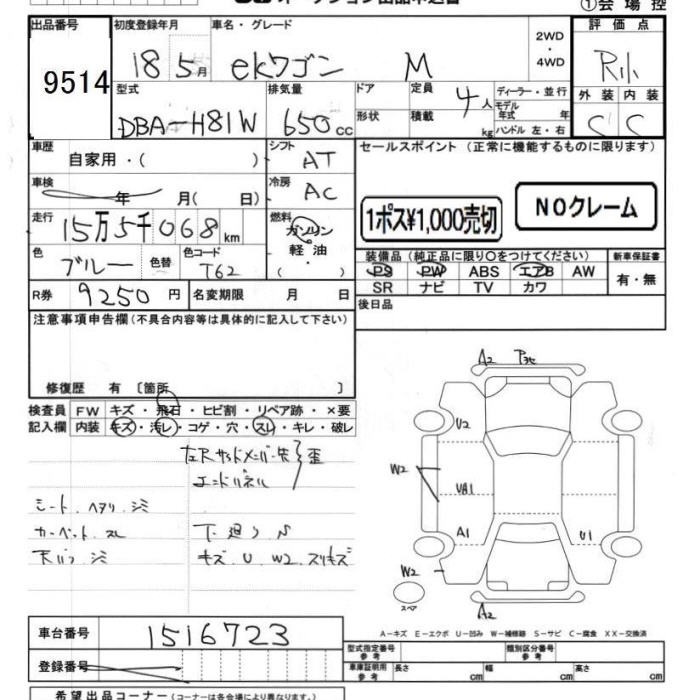 ①会場控
出品番号 初度登録年月 車名・グレード 評価点
9514 18 5月 ekワゴン M 2WD・4WD R
型式 排気量 ドア 定員 ディーラー・並行 外装 内装
DBA-H81W 650cc 形状 4人 積載 kg モデル年式 年 ハンドル 左・右 C C
車歴 シフト セールスポイント (正常に機能するものに限ります)
自家用・( ) AT
車検 年 月( 日) 冷房 AC
1ポス¥1,000売切 NOクレーム
走行 15万5千068km 燃料 ガソリン 軽油 ( )
色 ブルー 色替 色コード T62
装備品 (純正品に限り○をつけてください) 新車保証書
PS PW ABS エアB AW 有・無
SR ナビ TV カワ
R券 9250円 名変期限 月 日 後日品
注意事項申告欄(不具合内容等は具体的に記入して下さい)
修復歴 有 〔箇所 〕
検査員 FW キズ・飛石・ヒビ割・リペア跡・×要
記入欄 内装 キズ・汚レ・コゲ・穴・スレ・キレ・破レ
左Rサイドメンバー先 歪
エンドパネル
シート.ヘタリ.シミ
カーペット.スレ 下廻りS
天バリ.シミ キズ.U.W2.スリキズ
A2
U2
W2
UA1
A1 U1
W2
スペア
A2
A-キズ E-エクボ U-凹み W-補修跡 S-サビ C-腐食 XX-交換済
車台番号 1516723
型式指定番号 参考 類別区分番号 参考
登録番号 車庫証明用 参考 長さ cm 幅 cm 高さ cm
希望出品コーナー(コーナーは各会場により異なります。)